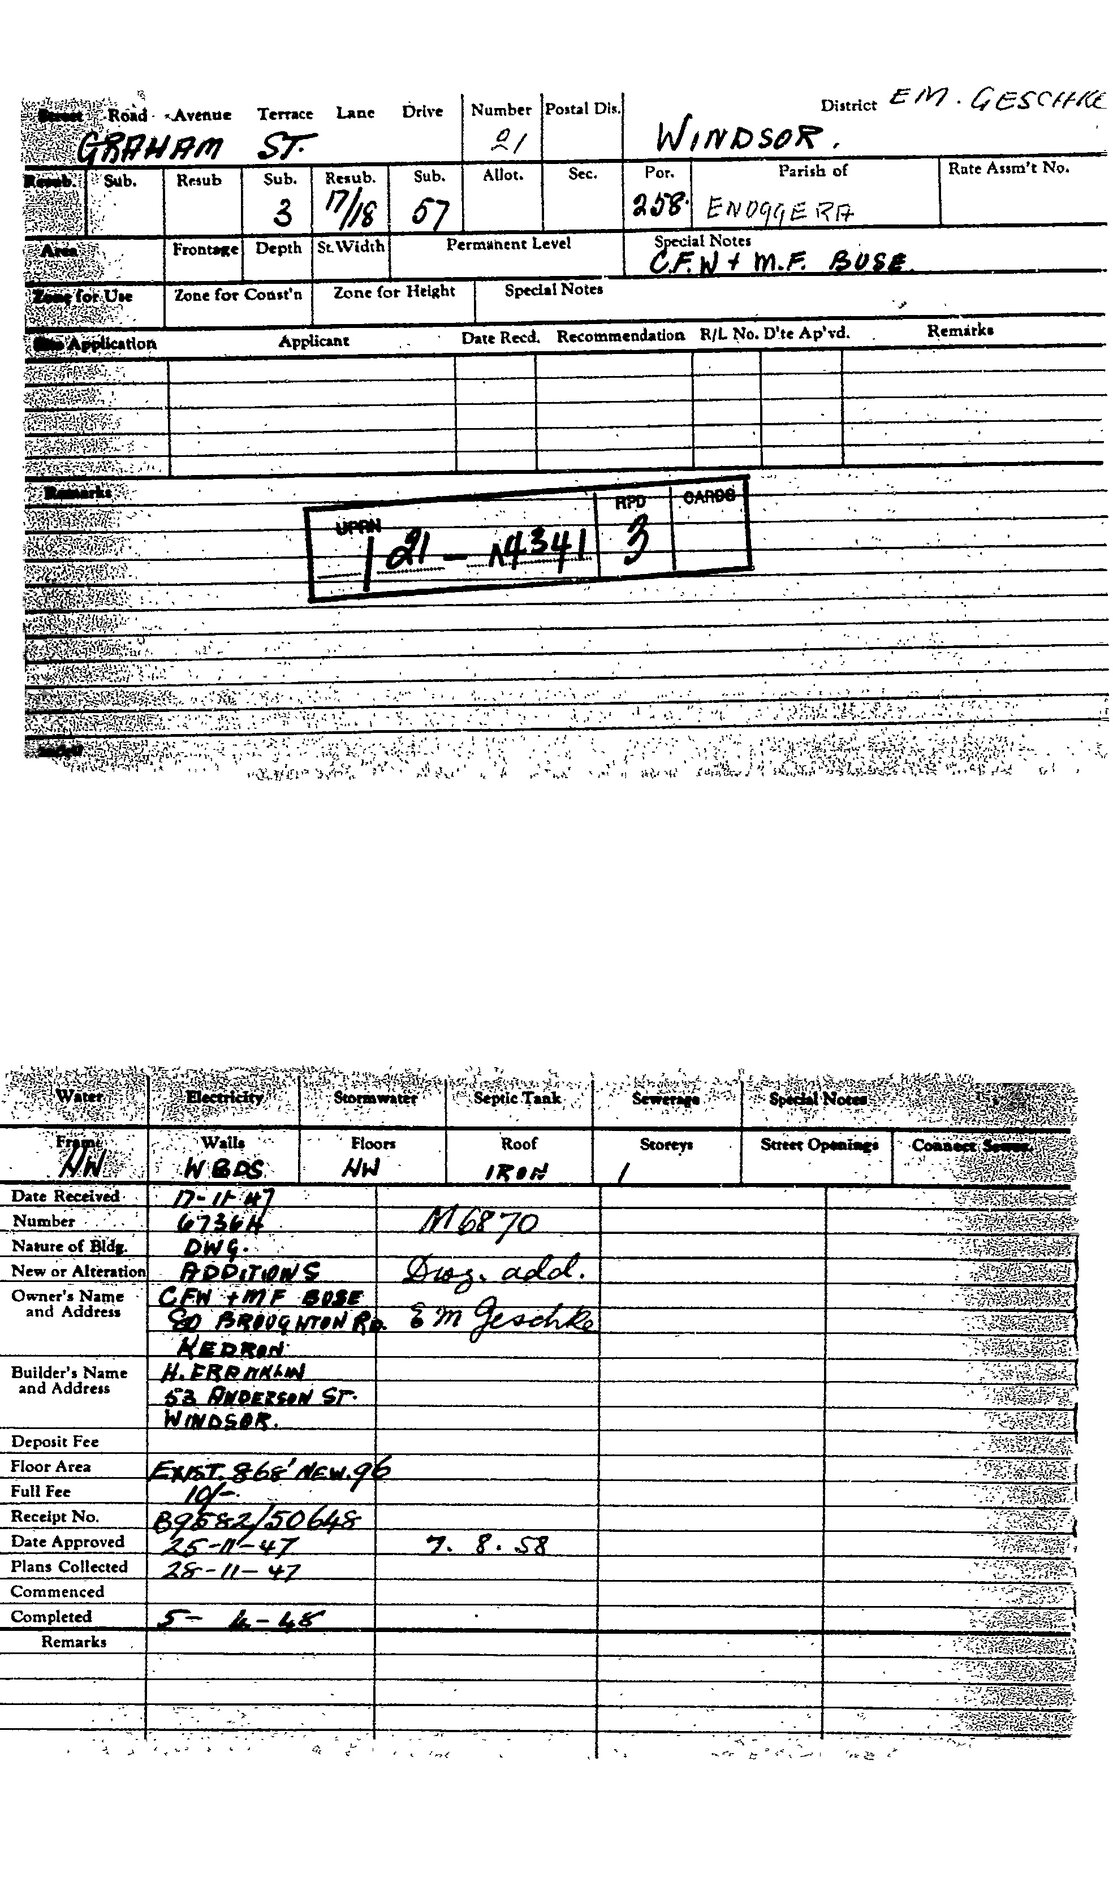 Street Road Avenue Terrace Lane Drive Number Postal Dis. District EM. GESCHKE
GRAHAM ST. 21 WINDSOR.
Resub. Sub. Resub Sub. Resub. Sub. Allot. Sec. Por. Parish of Rate Assm't No.
3 17/18 57 258 ENOGGERA
Area Frontage Depth St. Width Permanent Level Special Notes
C.F.W + M.F. BUSE.
Zone for Use Zone for Const'n Zone for Height Special Notes
Application Applicant Date Recd. Recommendation R/L No. D'te Ap'vd. Remarks
Remarks
UPRN RPD CARDS
21 - 14341 3
Water Electricity Stormwater Septic Tank Sewerage Special Notes
Frame Walls Floors Roof Storeys Street Openings Connect Sewer.
HW WBDS. HW IRON 1
Date Received 17-11-47
Number 6736H M6870
Nature of Bldg. DWG.
New or Alteration ADDITIONS Dwg. add.
Owner's Name and Address CFW + MF BUSE
80 BROUGHTON RD. E M Geschke
KEDRON
Builder's Name and Address H. FRANKLIN
53 ANDERSON ST.
WINDSOR.
Deposit Fee
Floor Area EXIST. 868' NEW. 96
Full Fee 10/-
Receipt No. B9582/50648
Date Approved 25-11-47 7. 8. 58
Plans Collected 28-11-47
Commenced
Completed 5- 4-48
Remarks